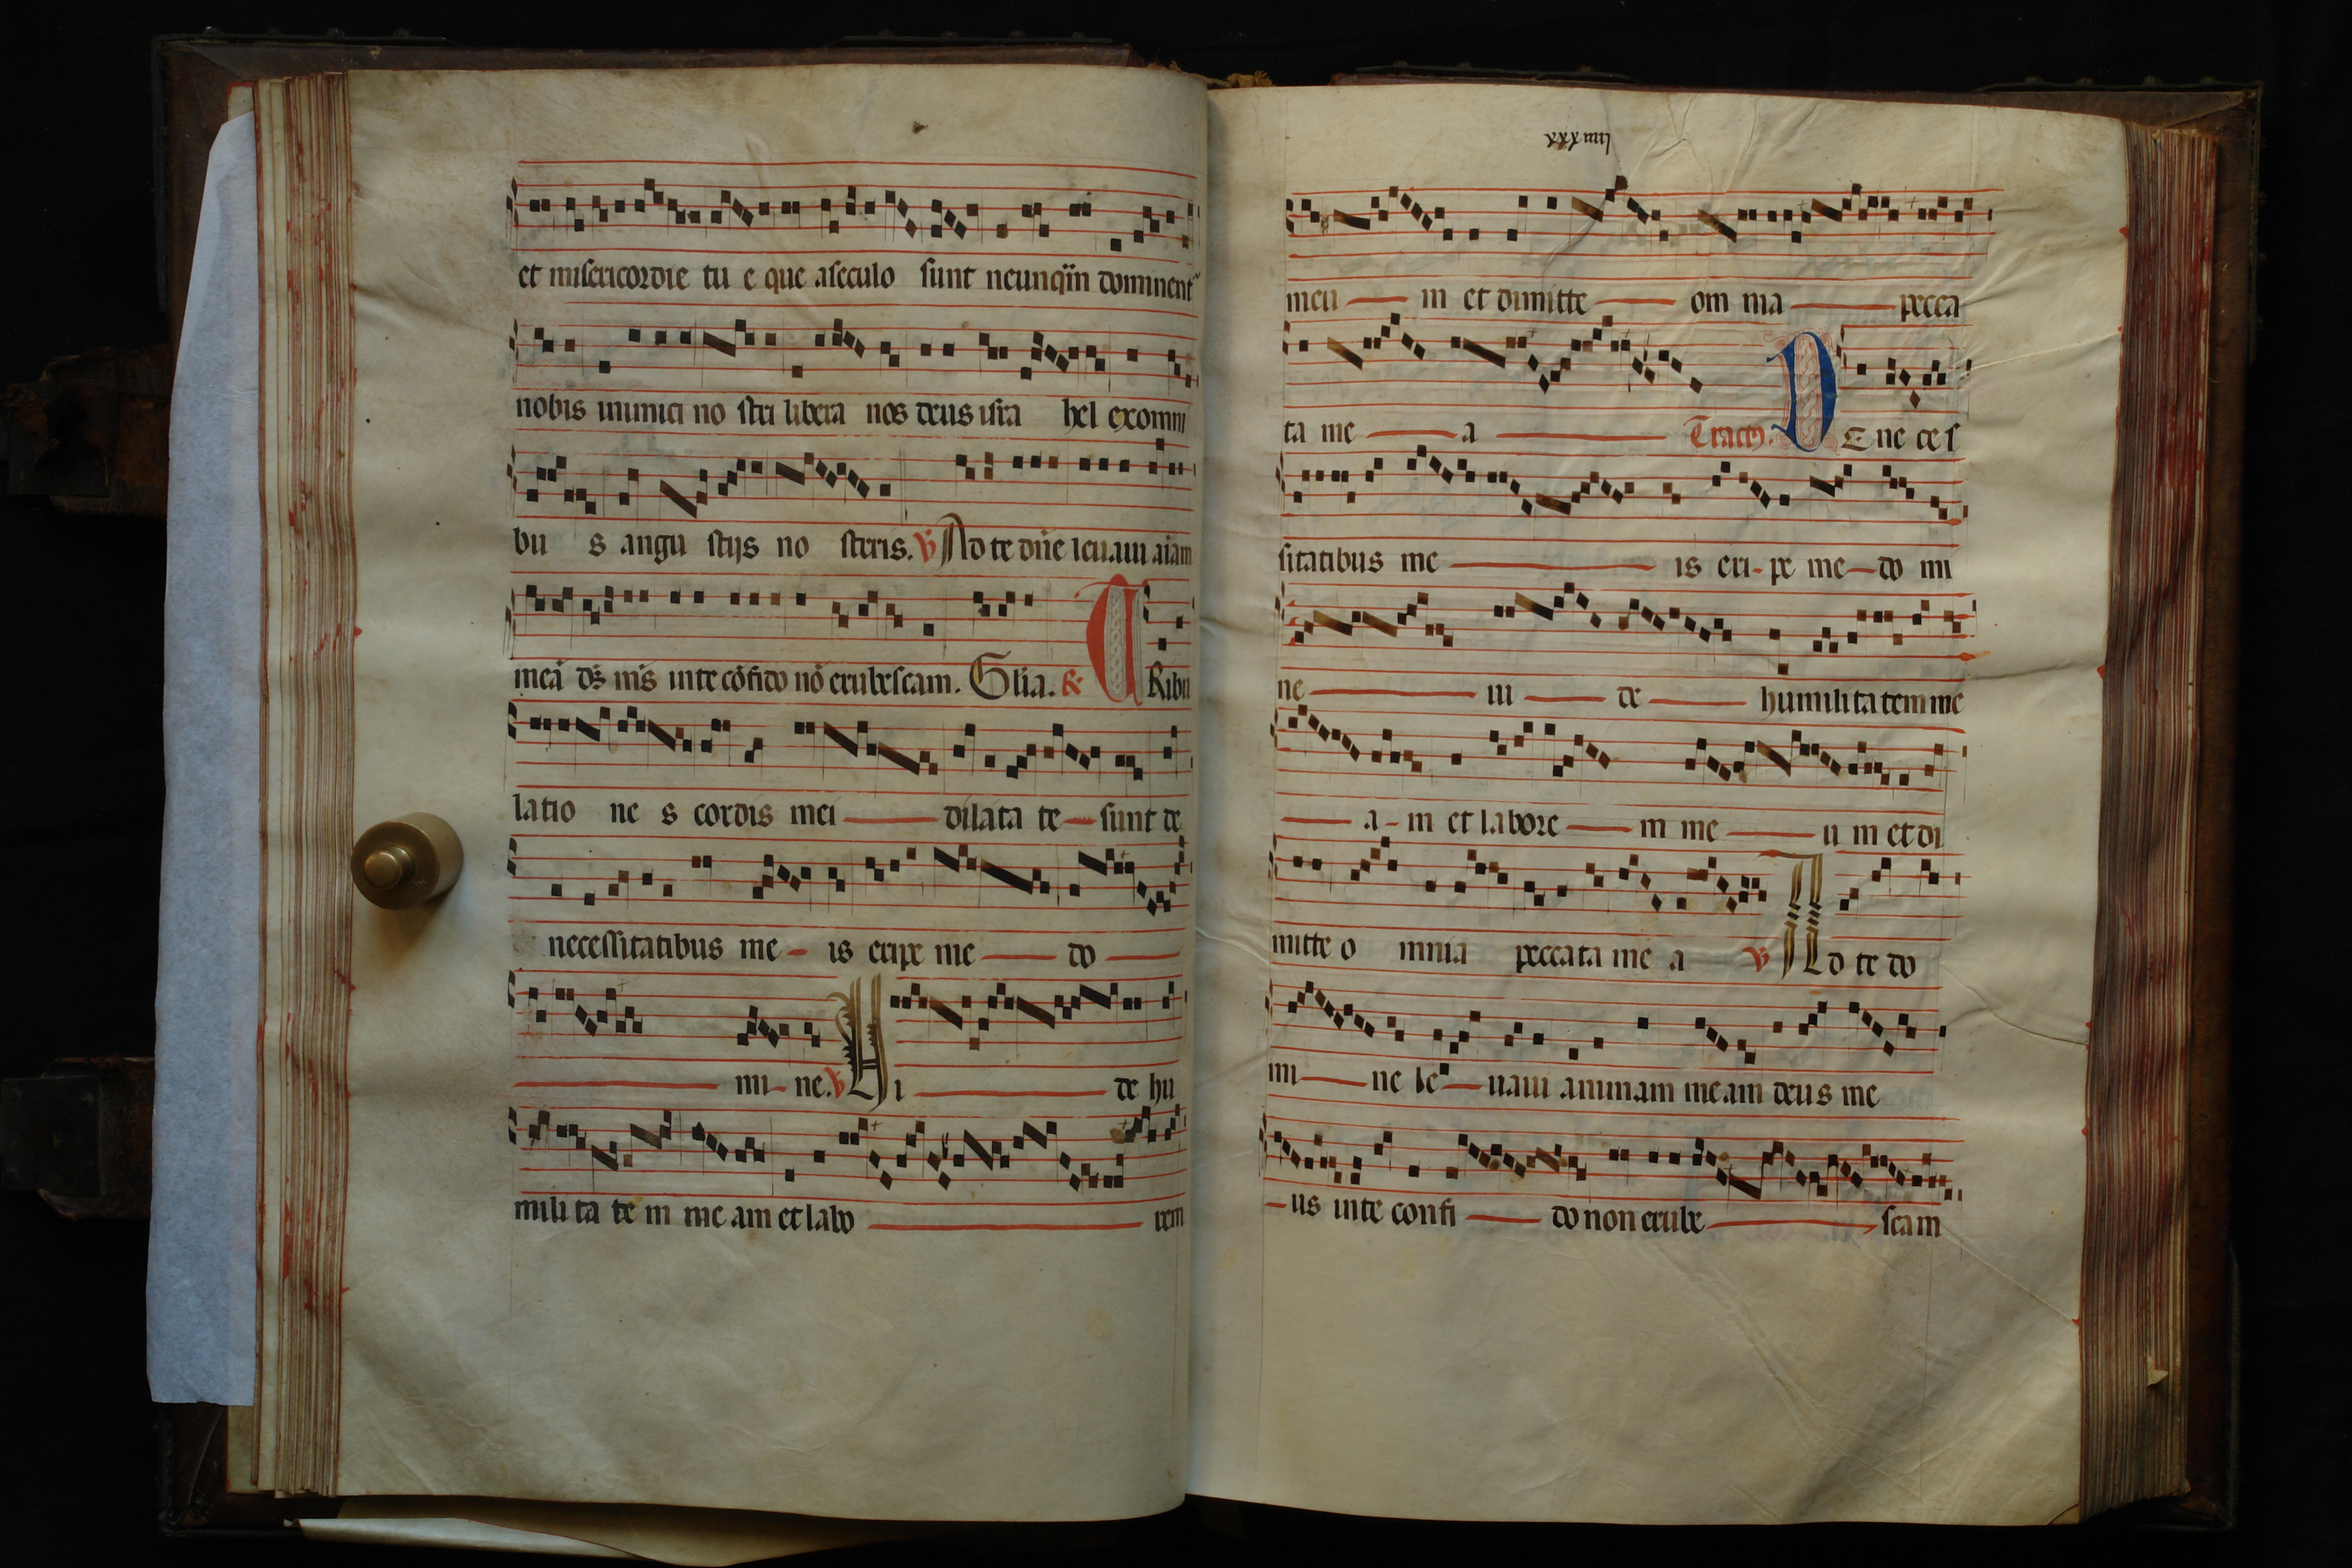 et misericordie tu e que aseculo sunt neunq̈in dominent᷑
nobis inimici no stri libera nos deus isra hel exomni
bu s angu stijs no steris. ꝟ Ad te dn̄e leuaui aīam
meā ds̄ ms̄ inte cōfido nō erubescam. Glīa. ℟ TRibu
latio ne s cordis mei dilata te sunt de
necessitatibus me is eripe me do
mi ne. ꝟ Vi de hu
mili ta te m me am et labo rem
meu m et dimitte om nia pecca
ta me a Tractꝰ. DE ne ces
sitatibus me is eri pe me do mi
ne ui de humilitatem me
a m et labore m me u m et di
mitte o mnia peccata me a ꝟ Ad te do
mi ne le uaui animam meam deus me
us inte confi do non erube scam